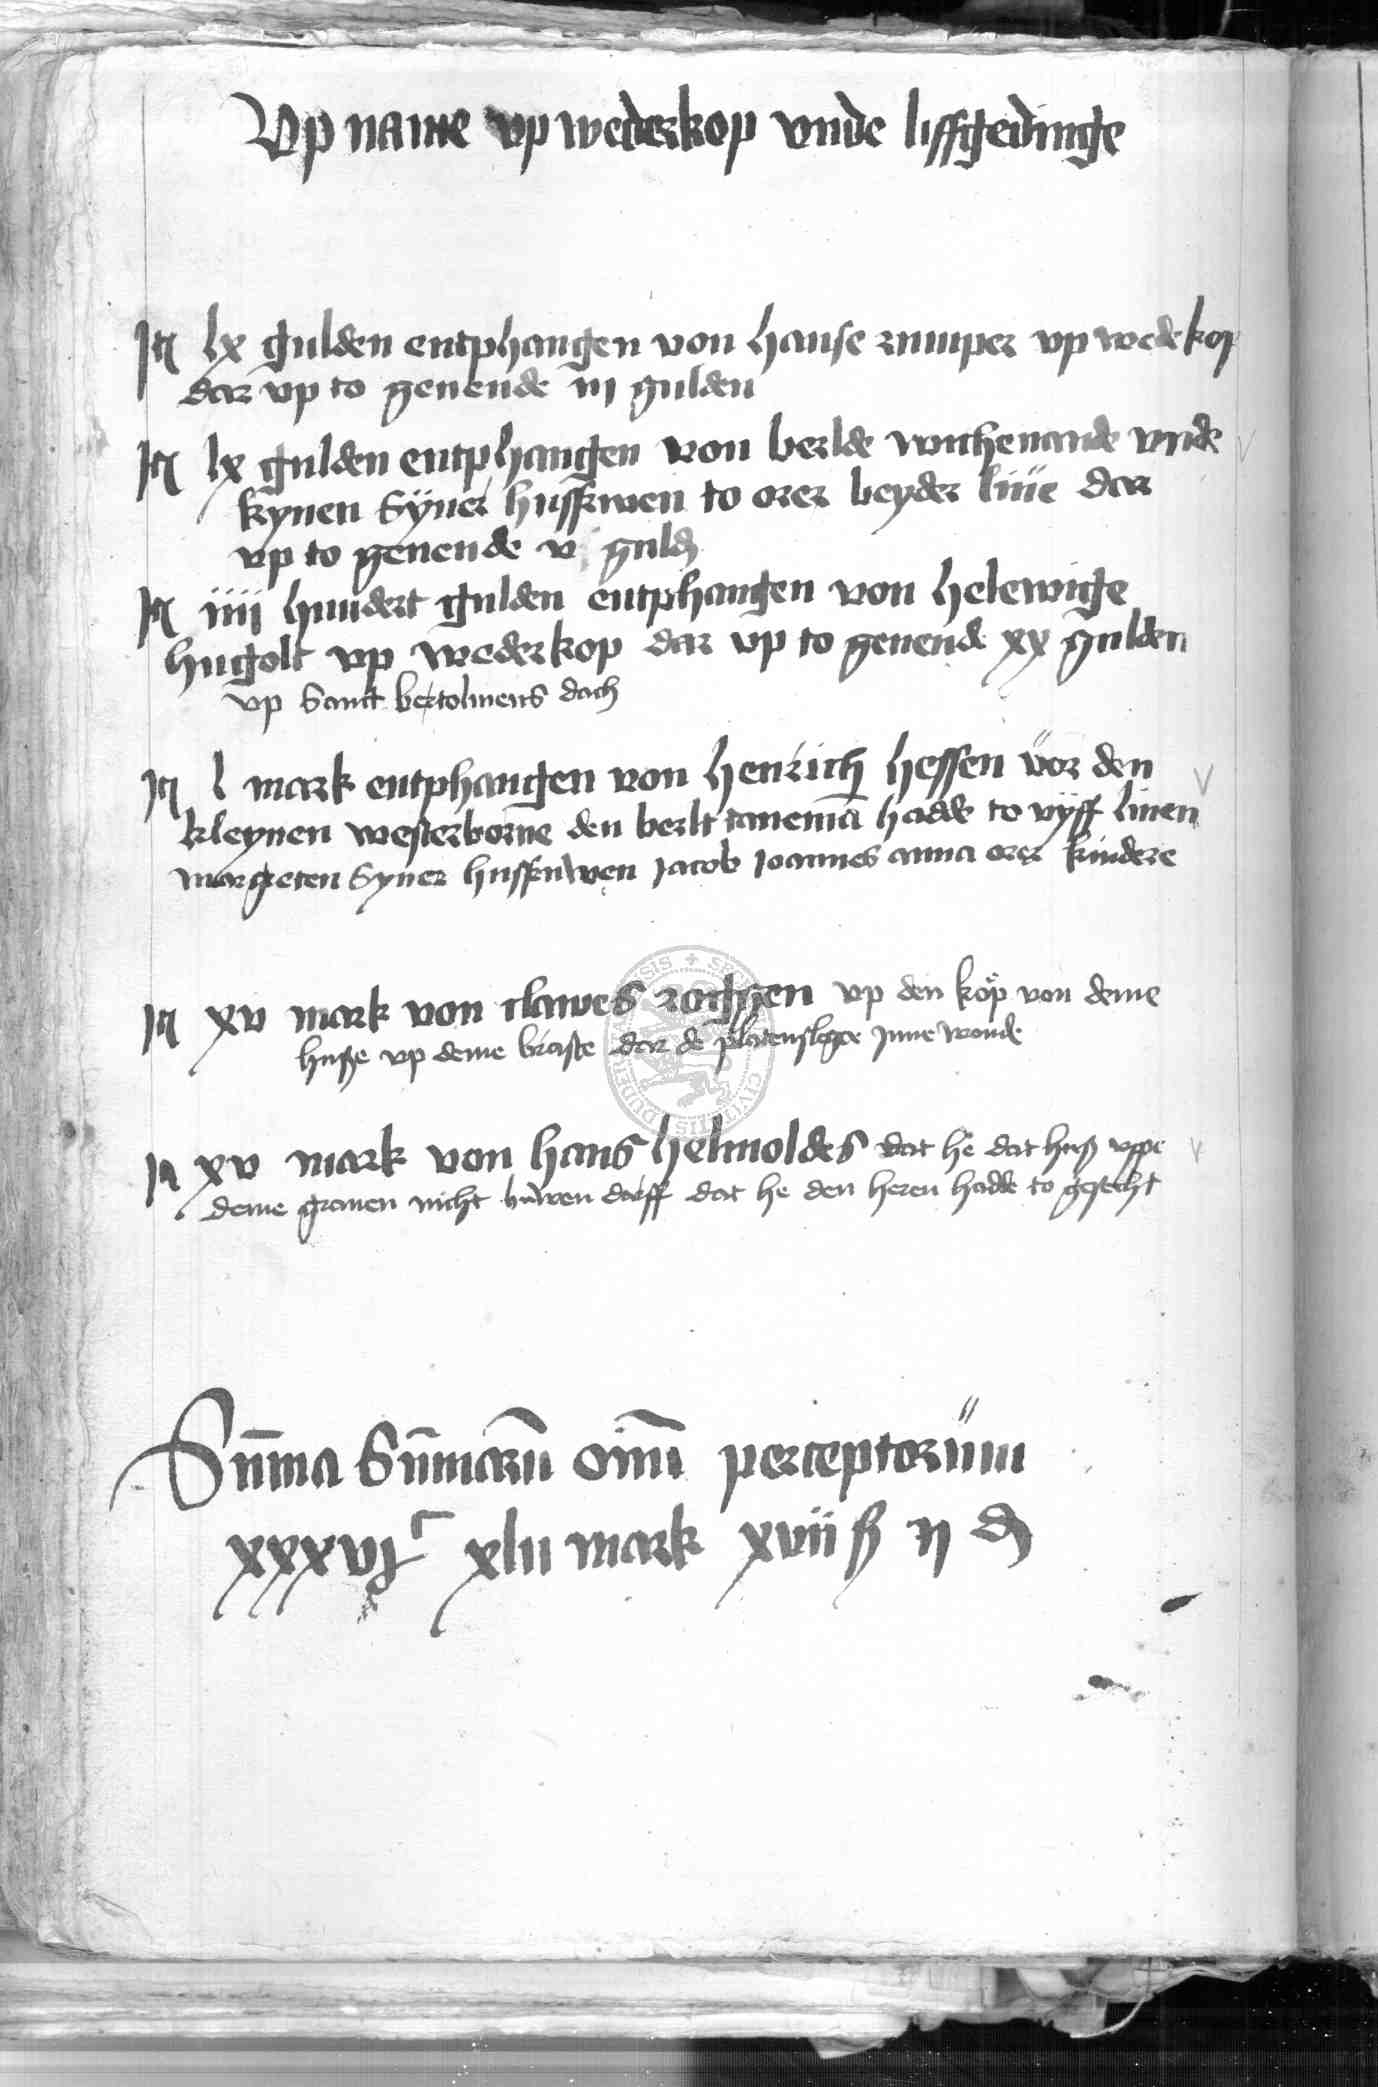 Vp name vp wederkop vnde liffgedinge
It lx gulden entphangen von hanse rumper vp wedekop
dar vp to geuende iij gulden
It lx gulden entphangen von berlde witthenande vnde
kynen syner husfrwen to orer beyder liue dar
vp to geuende vj guld
It iiij hundert gulden entphangen von helewige
hugolt vp wederkop dar vp to geuende xx gulden
vp sanct bertolmeus dach
It l mark entphangen von henrich hessen vor den
kleynen westerborne den berlt tanemā hadde to vyff liuen
margeten syner husfruwen Jacob Joannes anna orer kindere
It xv mark von clawes rochgen vp den kop von deme
huße vp deme briste dar de platensleger Jnne wonde
It xv mark von hans helmoldes dat he dat huß vppe
deme grauen nicht buwen darff dat he den heren hadde to gesecht
Sūma sūmarū oīm perceptorum
xxxvjᶜ xlii mark xviii ß ij ₰
SIGILLUM CIVITATIS DUDERSTADENSIS